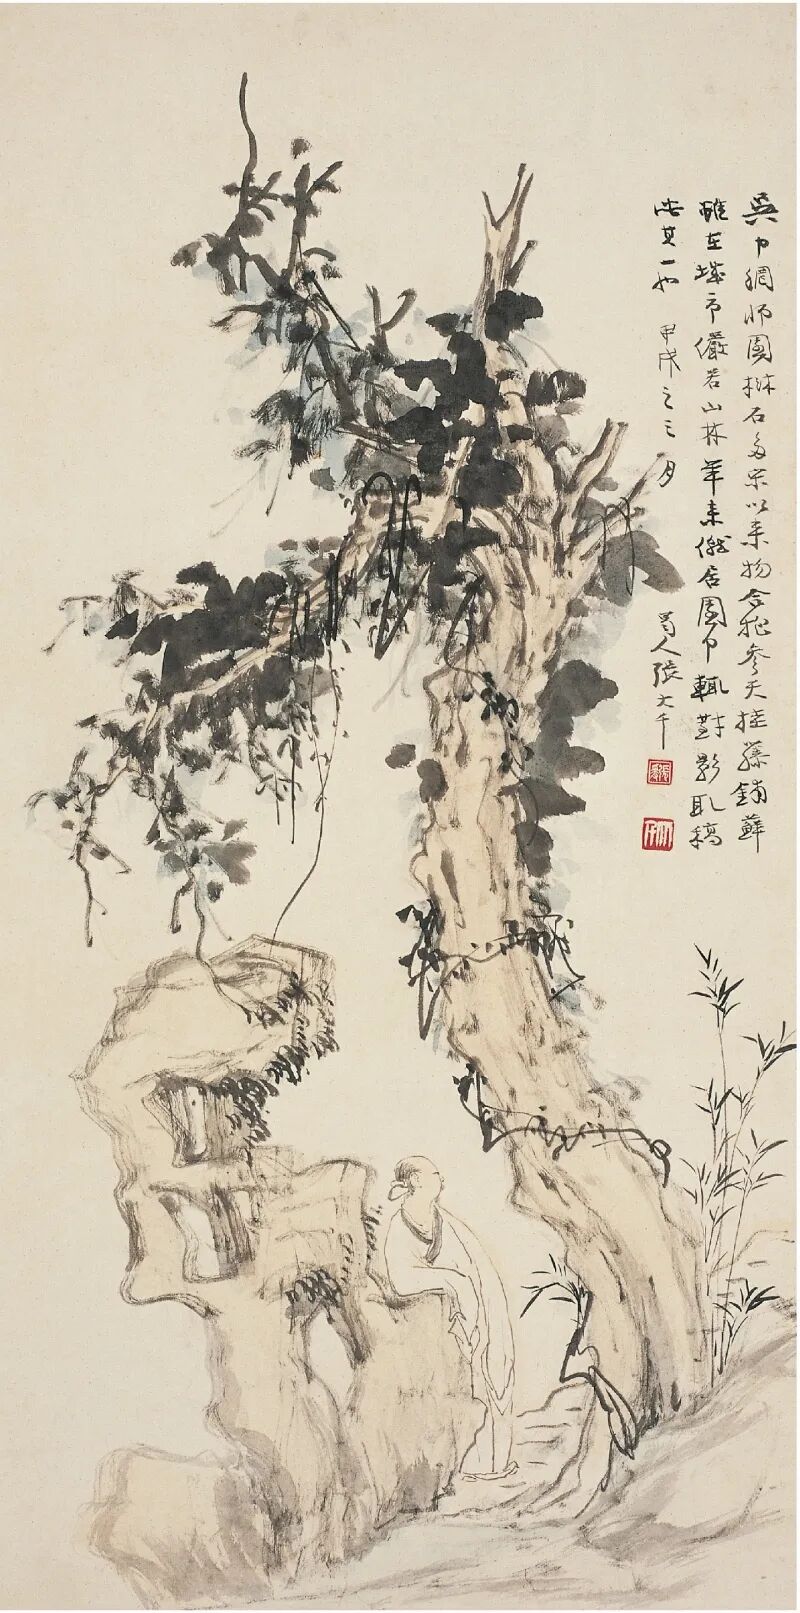 吳中網師園樹石多宋以來物合抱參天挂藤鋪蘚
雖在城市儼若山林年來僦居園中輒對影取稿
此其一也 甲戌之三月 蜀人張大千
張爰
大千